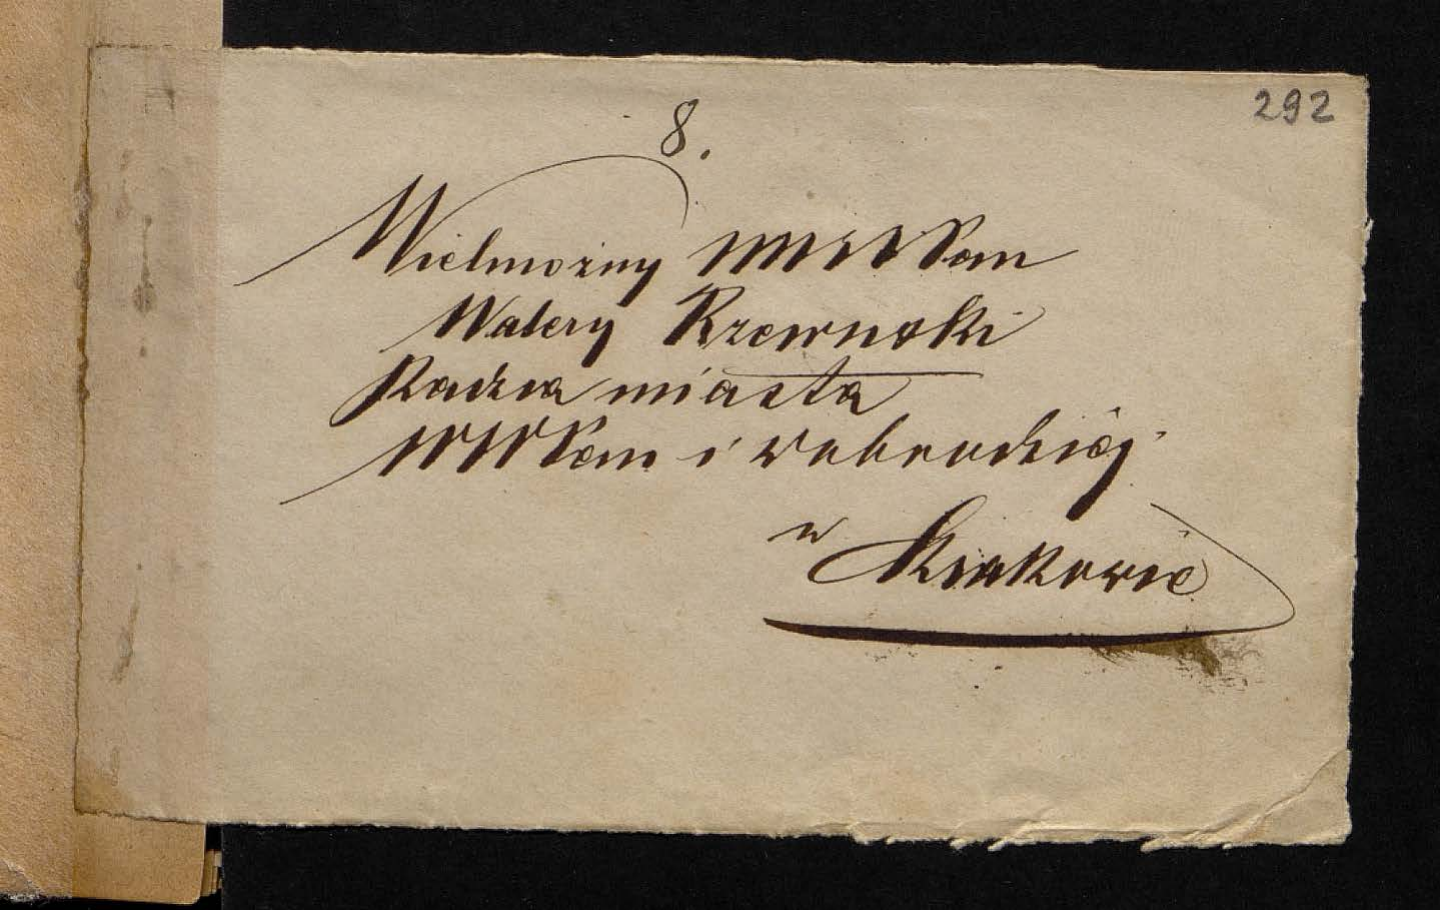 292
8.
Wielmożny Pan
Walery Rzewuski
Radzca miasta
i Dobrodziej
w Krakowie